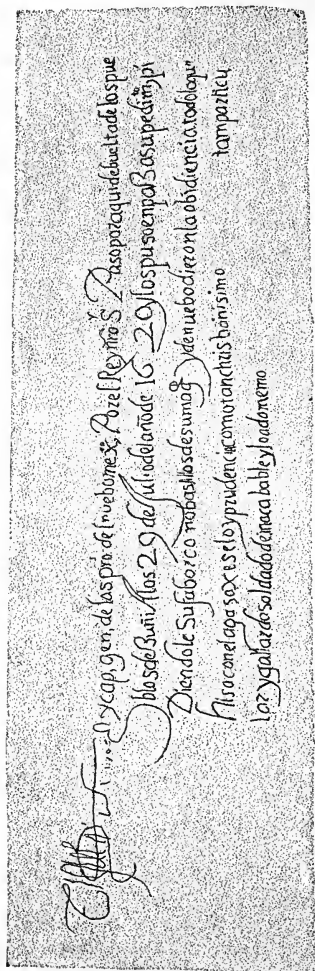 y cap. gen, de las pro del nuebo mex, Por el Rey nro S. Paso por aqui de buelta de los pue
blos de Zuñi a los 29 de Julio del año de 1629 y los puso en paz a su pedim, pi
Diendole Su fabor co mo basllos de su mag y de nuebo dieron la obidiencia todo lo qu
hiso con el agasaxe selo y prudencia como tan chrisianisimo tam particu
lar y gallardo soldado de inacabable y loada memo